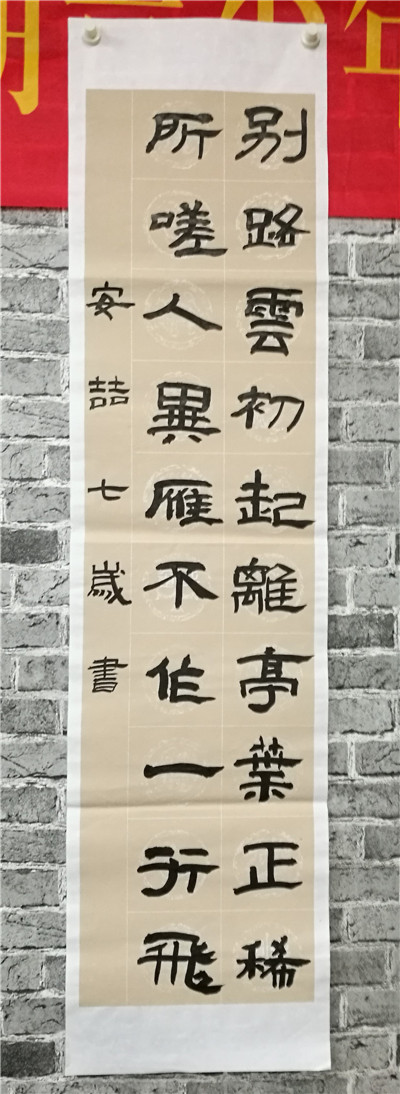 别路雲初起離亭葉正稀
所嗟人異雁不作一行飛
安喆七歲書